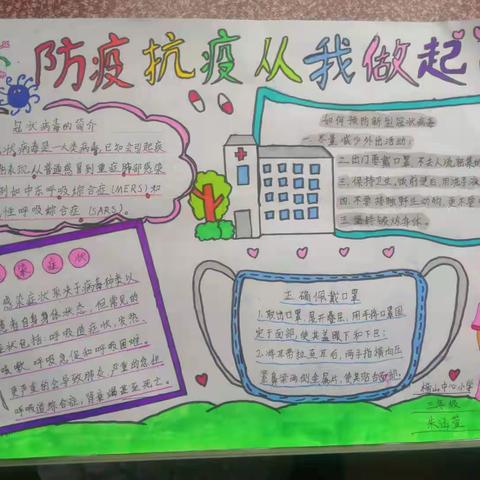 防疫抗疫从我做起
冠状病毒的简介
状病毒是一大类病毒,已知会引起疾
从普通感冒到重症肺部感染
例如中东呼吸综合症(MERS)和
性呼吸综合症(SARS)。
如何预防新型冠状病毒
尽量减少外出活动;
二.出门要戴口罩,不去人流密集的
三.保持卫生,饭前便后,用洗手液
四.不要接触野生动物,更不要
五.坚持锻炼身体。
感染症状
感染症状取决于病毒种类以
患者自身身体状态,但常见的
症状包括:呼吸道症状,发热,
咳嗽,呼吸急促和呼吸困难。
更严重的会导致肺炎,严重的急性
呼吸道综合症,肾衰竭甚至死亡。
正确佩戴口罩
1.取出口罩,展开叠层,用手将口罩固
定于面部,使其盖眼下和下巴;
2.将耳带拉至耳后,两手指横向压
紧鼻梁两侧金属片,使其密合面部.
横山中心小学
三年级
朱涵萱